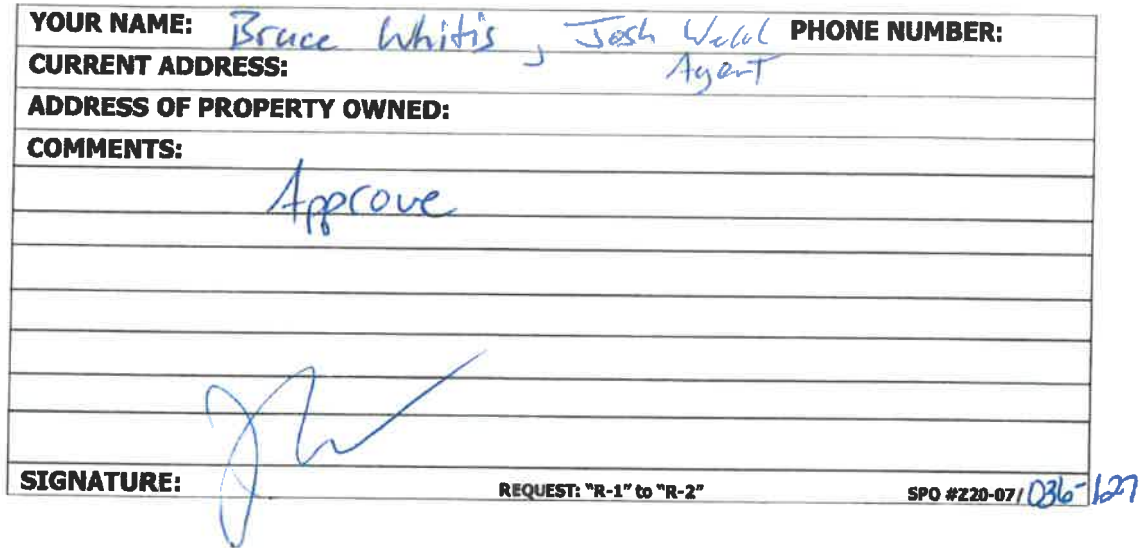 YOUR NAME: Bruce Whitis, Josh PHONE NUMBER:
CURRENT ADDRESS: Agent
ADDRESS OF PROPERTY OWNED:
COMMENTS:
Approve
SIGNATURE: REQUEST: "R-1" to "R-2" SPO #Z20-07/036-127